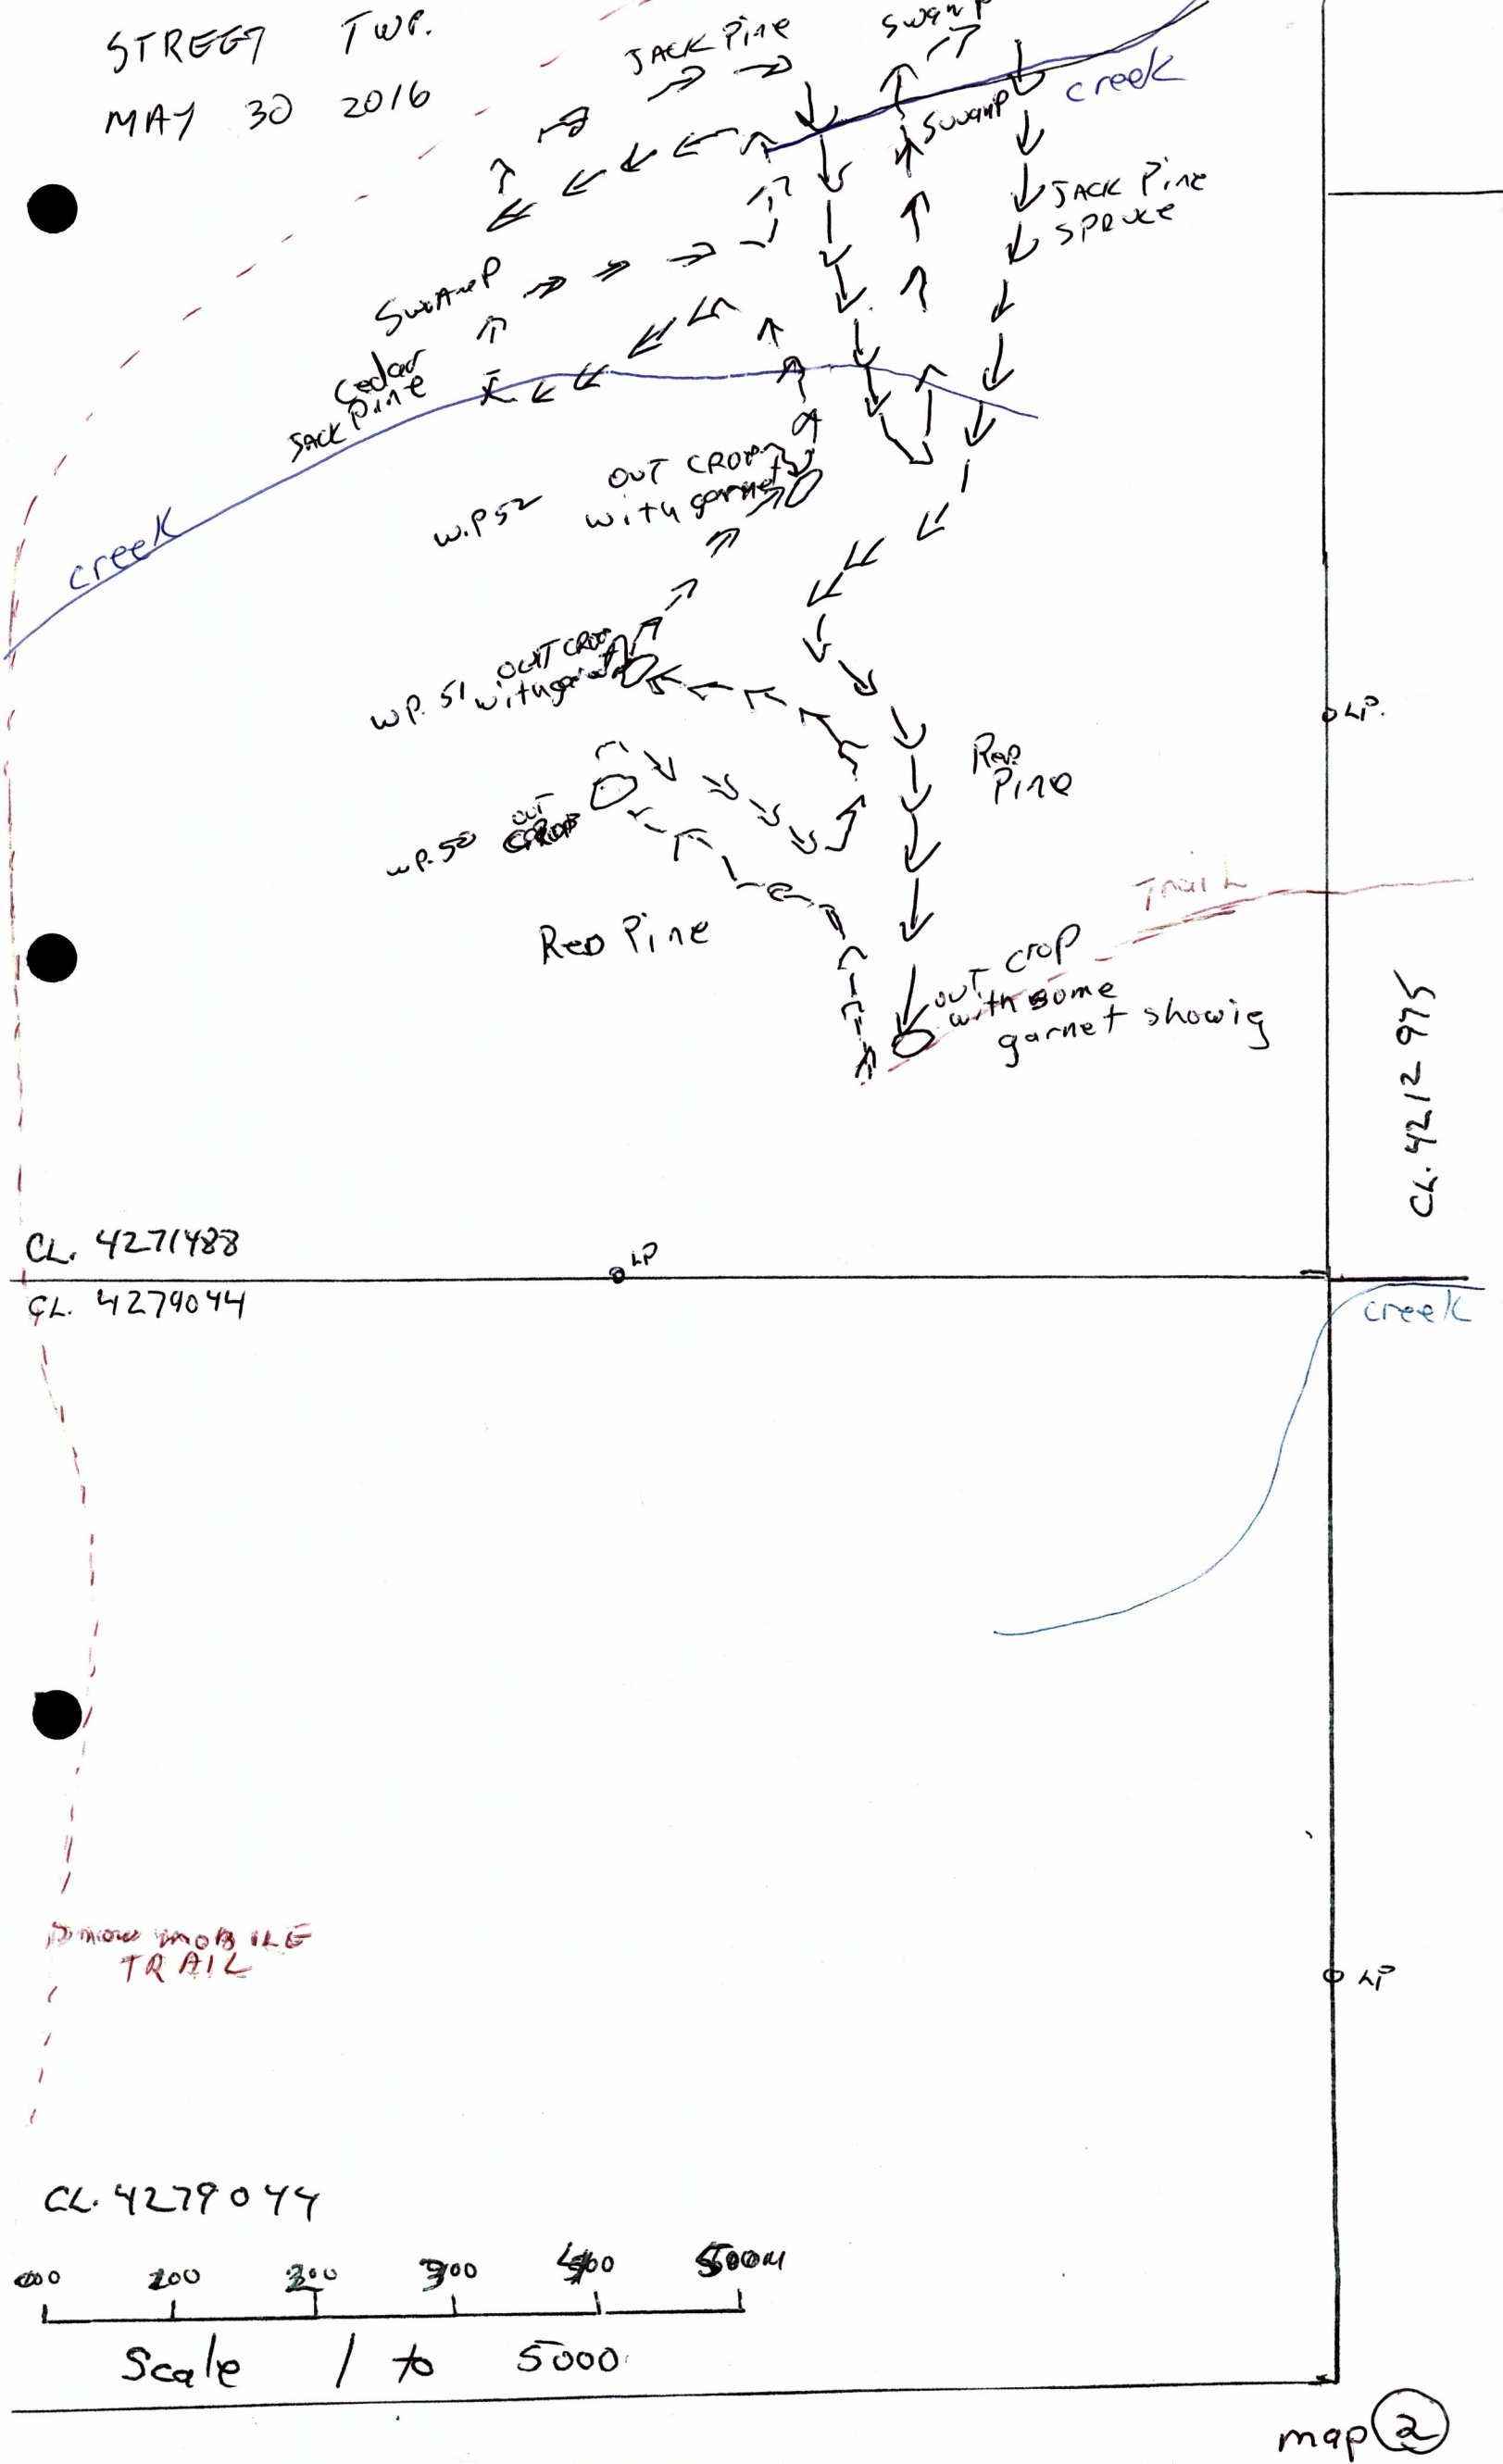 STREET TWP.
MAY 30 2016
JACK Pine
Swamp
creek
Swamp
JACK Pine
SPRUCE
Swamp
Cedar
JACK Pine
creek
W.P 52 OUT CROP
with garnet
WP. 51 OUT CROP
with garnet
WP. 50 OUT
CROP
Red
Pine
LP.
Trail
Red Pine
OUT crop
with some
garnet showig
CL. 4212975
CL. 4271488
LP
CL. 4279044
creek
SNOWMOBILE
TRAIL
LP
CL. 4279044
000 100 200 300 400 500M
Scale 1 to 5000
map 2